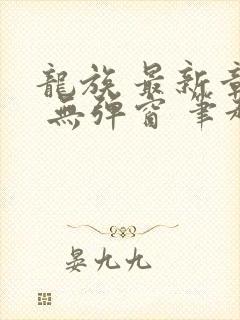 龍族 最新
無彈窗 筆
晏九九